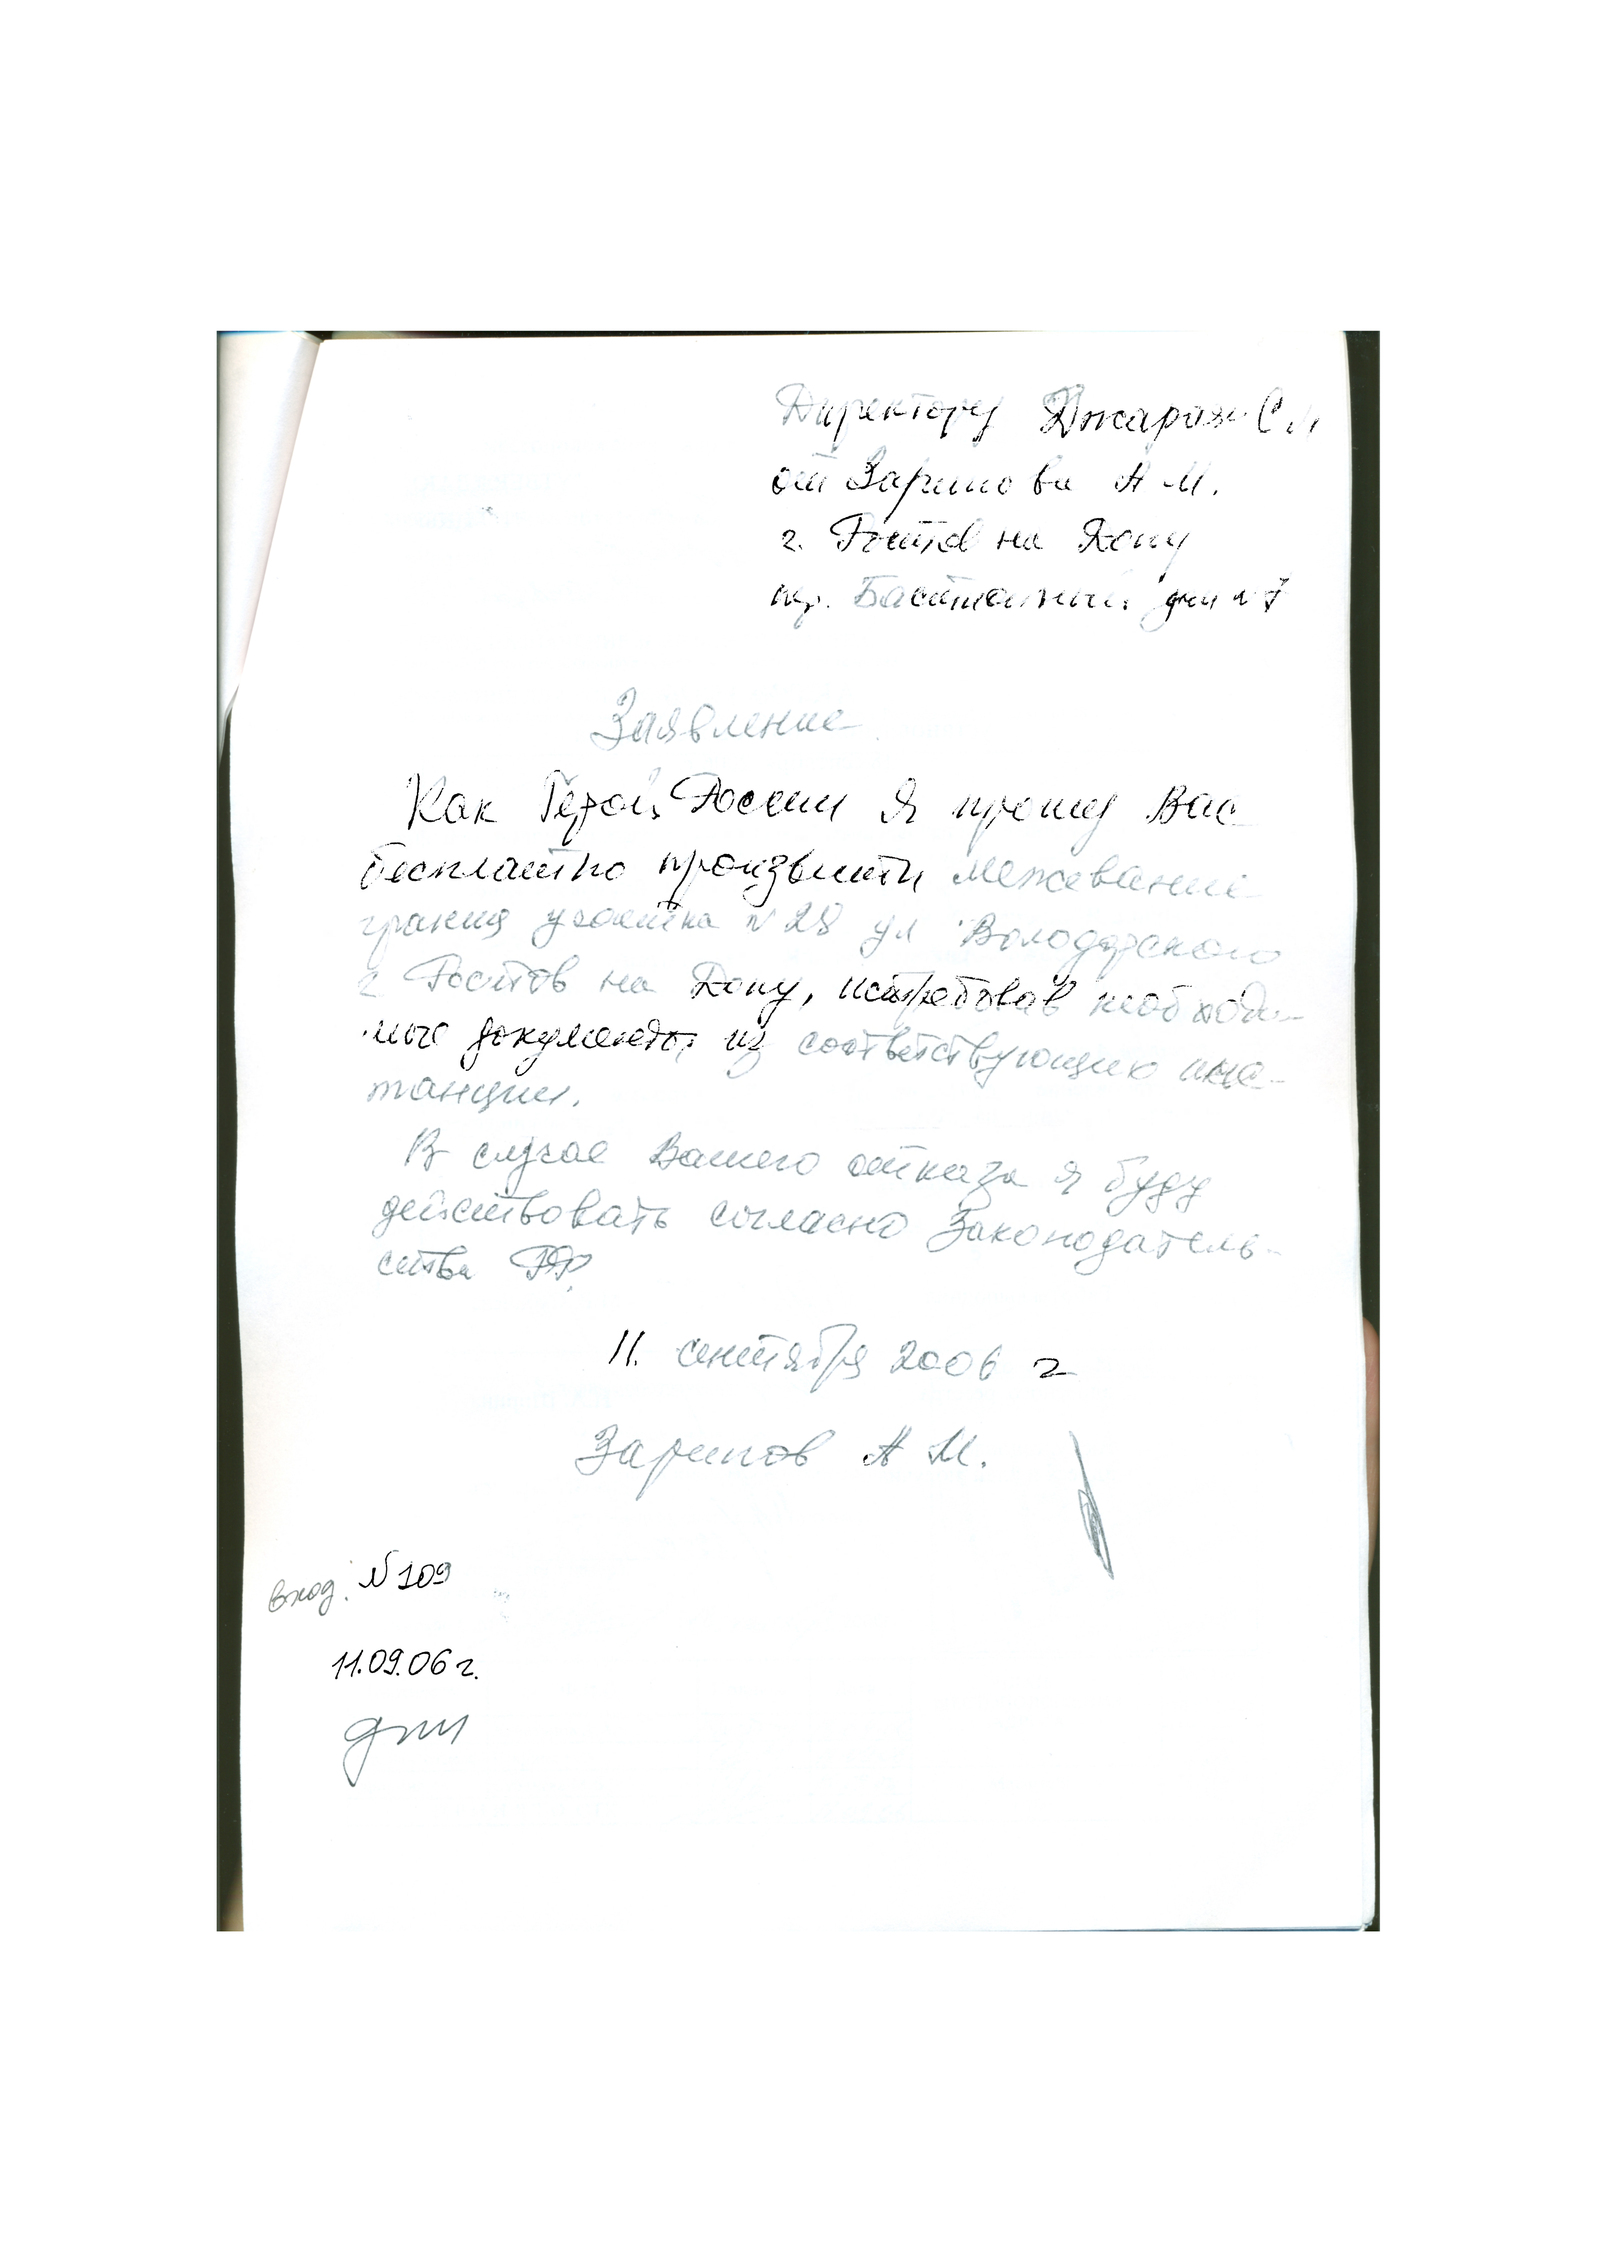 Директору
от Зарипова А М.
г. Ростов на Дону
пер. дом № 7
Заявление
Как Герой России я прошу Вас
бесплатно произвести межевание
границ участка № 28 ул Володарского
г Ростов на Дону, истребовав необходи-
мые документы из соответствующию инс-
танции.
В случае Вашего отказа я буду
действовать согласно Законодатель-
ства РФ.
11. сентября 2006 г
Зарипов А М.
вход. № 109
11.09.06 г.